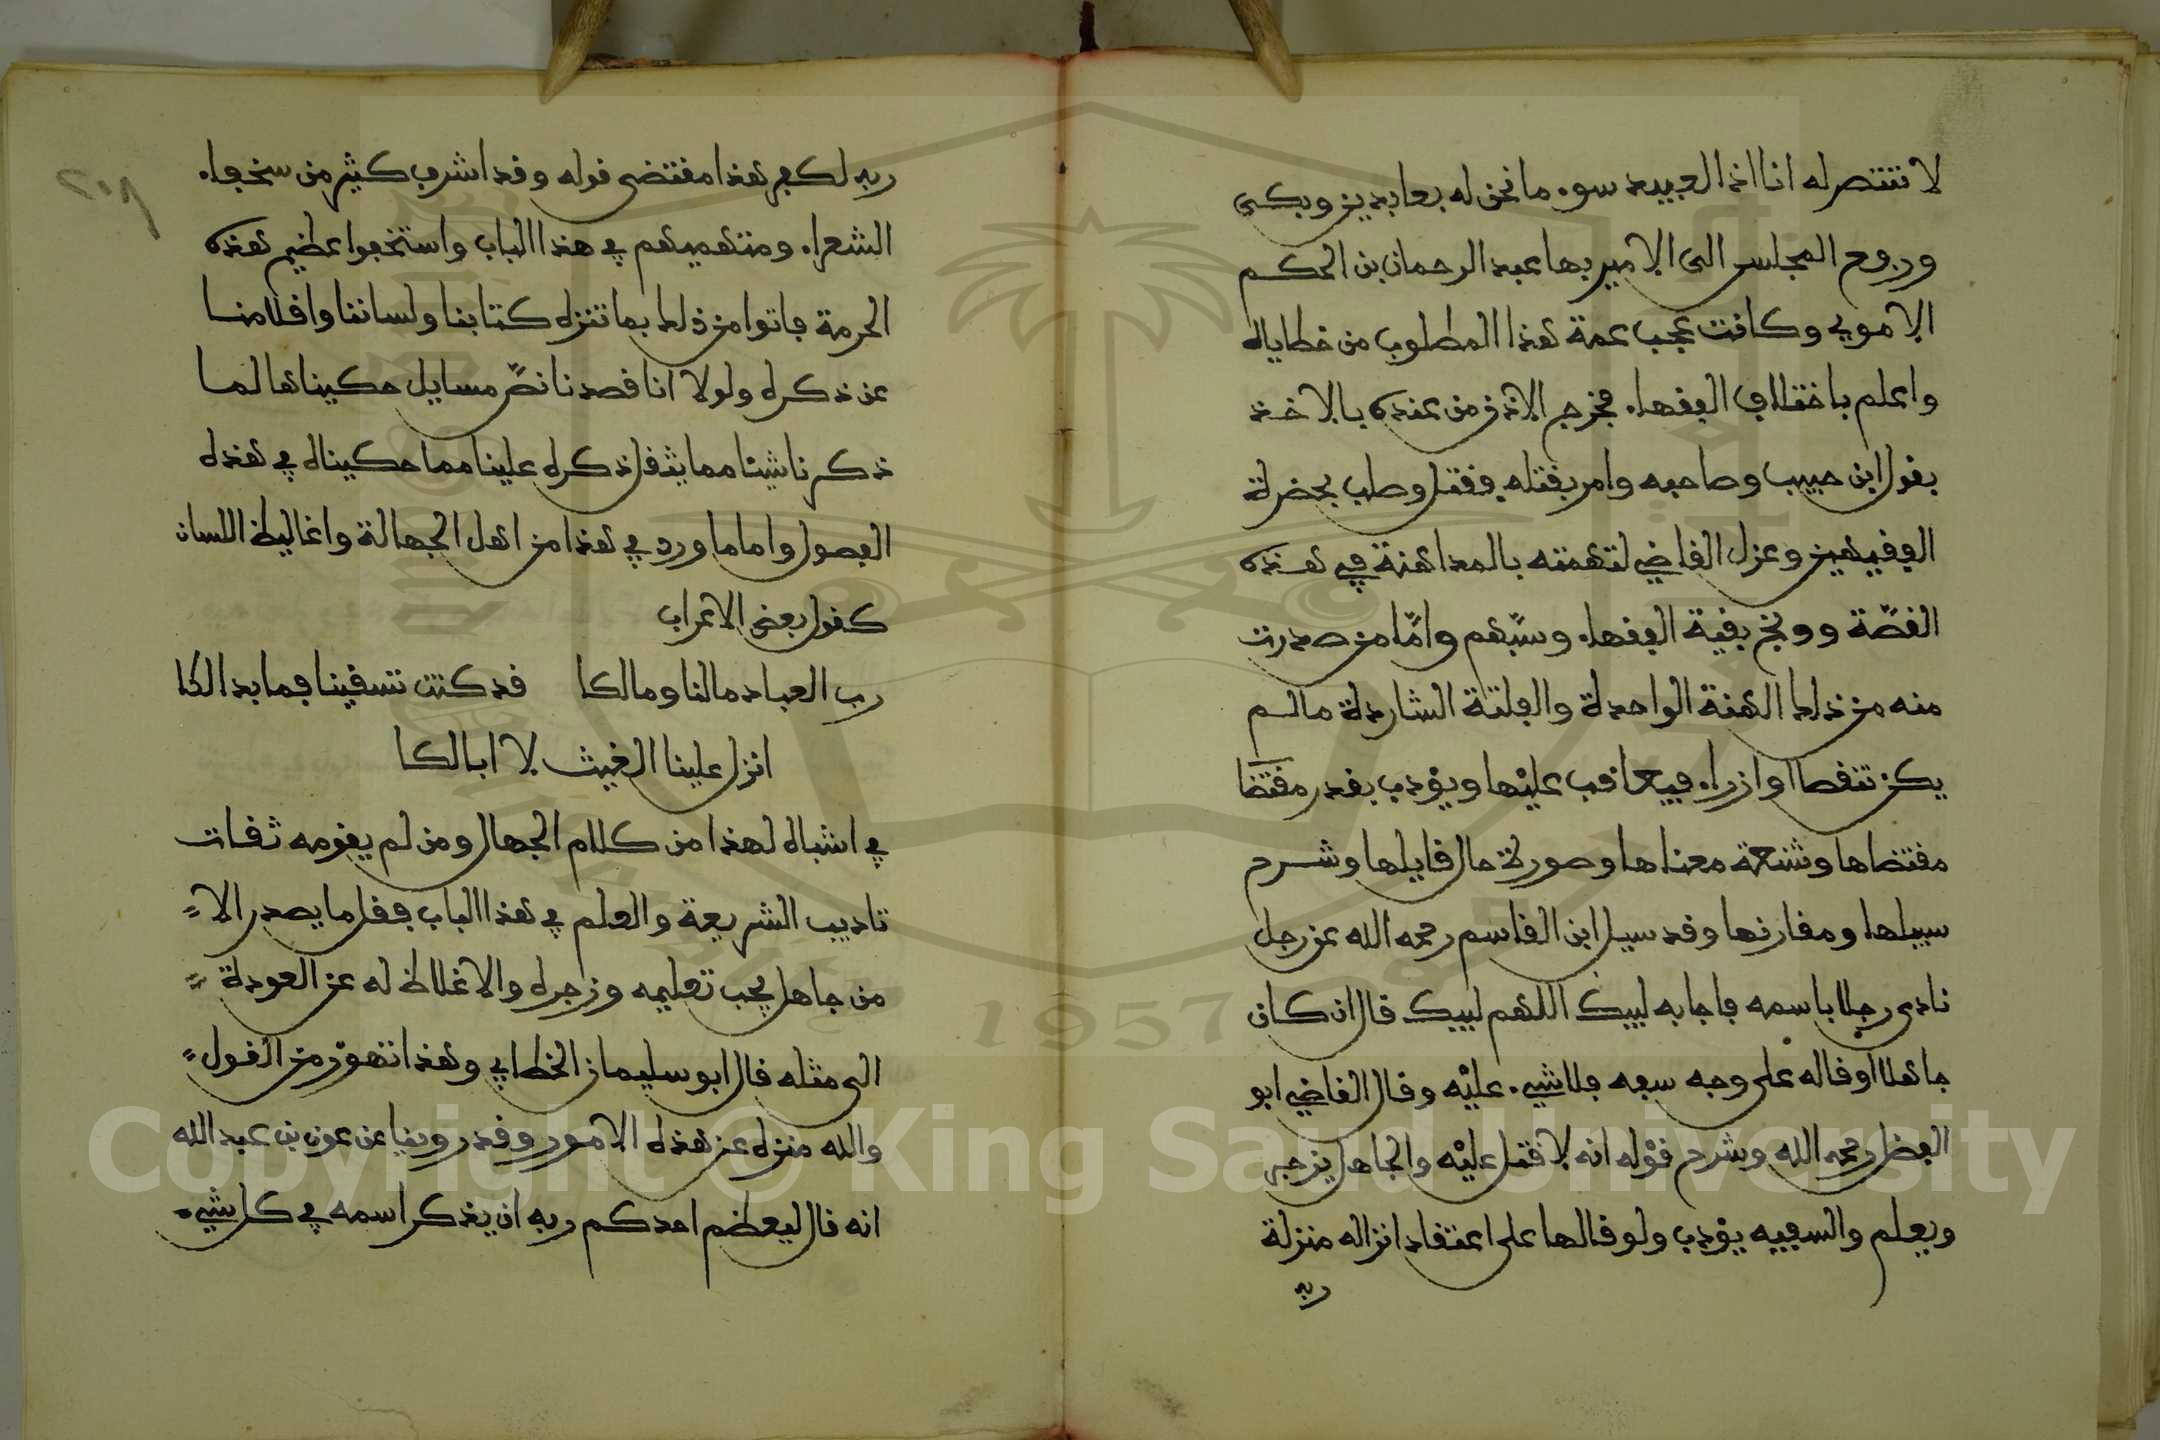 لا ننتصر له انا اذا العبيد سوء ما نحن له بعابدين وبكى
ورفع المجلس الى الامير بها عبد الرحمان بن الحكم
الاموي وكانت عجب عمة هذا المطلوب من حظاياه
واعلم باختلاف الفقهاء فخرج الاذن من عنده بالاخذ
بقول ابن حبيب وصاحبه وامر بقتله فقتل وصلب بحضرة
الفقيهين وعزل القاضي لتهمته بالمداهنة في هذه
القصّة ووبخ بقية الفقهاء وسبّهم وامّا من صدرت
منه من ذلك الهنة الواحدة والفلتة الشاردة ما لم
يكن تنقصا او ازراء فيعاقب عليها ويؤدب بقدر مقتضا
مقتضاها وشنعة معناها وصورة حال قايلها وشرح
سببلها ومقارنها وقد سيل ابن القاسم رحمه الله عن رجل
نادى رجلا باسمه فاجابه لبيك اللهم لبيك قال ان كان
جاهلا او قاله على وجه سفه فلا شيء عليه وقال القاضي ابو
الفضل رحمه الله وشرح قوله انه لا قتل عليه والجاهل يزجر
ويعلم والسفيه يؤدب ولو قالها على اعتقاد انزاله منزلة
ربه
ربه لكفر هذا مقتضى قوله وقد اشرب كثير من سخفاء
الشعراء ومتهميهم في هذا الباب واستخفوا عظيم هذه
الحرمة فاتوا من ذلك بما ننزه كتابنا ولساننا واقلامنا
عن ذكره ولولا انا قصدنا نصّ مسايل حكيناها لما
ذكرنا شيئا مما يثقل ذكره علينا مما حكيناه في هذه
الفصول واما ما ورد في هذا من اهل الجهالة واغاليط اللسان
كقول بعض الاعراب
رب العباد ما لنا وما لكا قد كنت تسقينا فما بدا لكا
انزل علينا الغيث لا ابا لكا
في اشباه لهذا من كلام الجهال ومن لم يقومه ثقات
تاديب الشريعة والعلم في هذا الباب فقل ما يصدر الا
من جاهل يجب تعليمه وزجره والاغلاظ له عن العودة
الى مثله قال ابو سليمان الخطابي وهذا تهوّر من القول
والله منزه عن هذه الامور وقد روينا عن عون بن عبد الله
انه قال ليعظم احدكم ربه ان يذكر اسمه في كل شيء
1957
Copyright © King Saud University